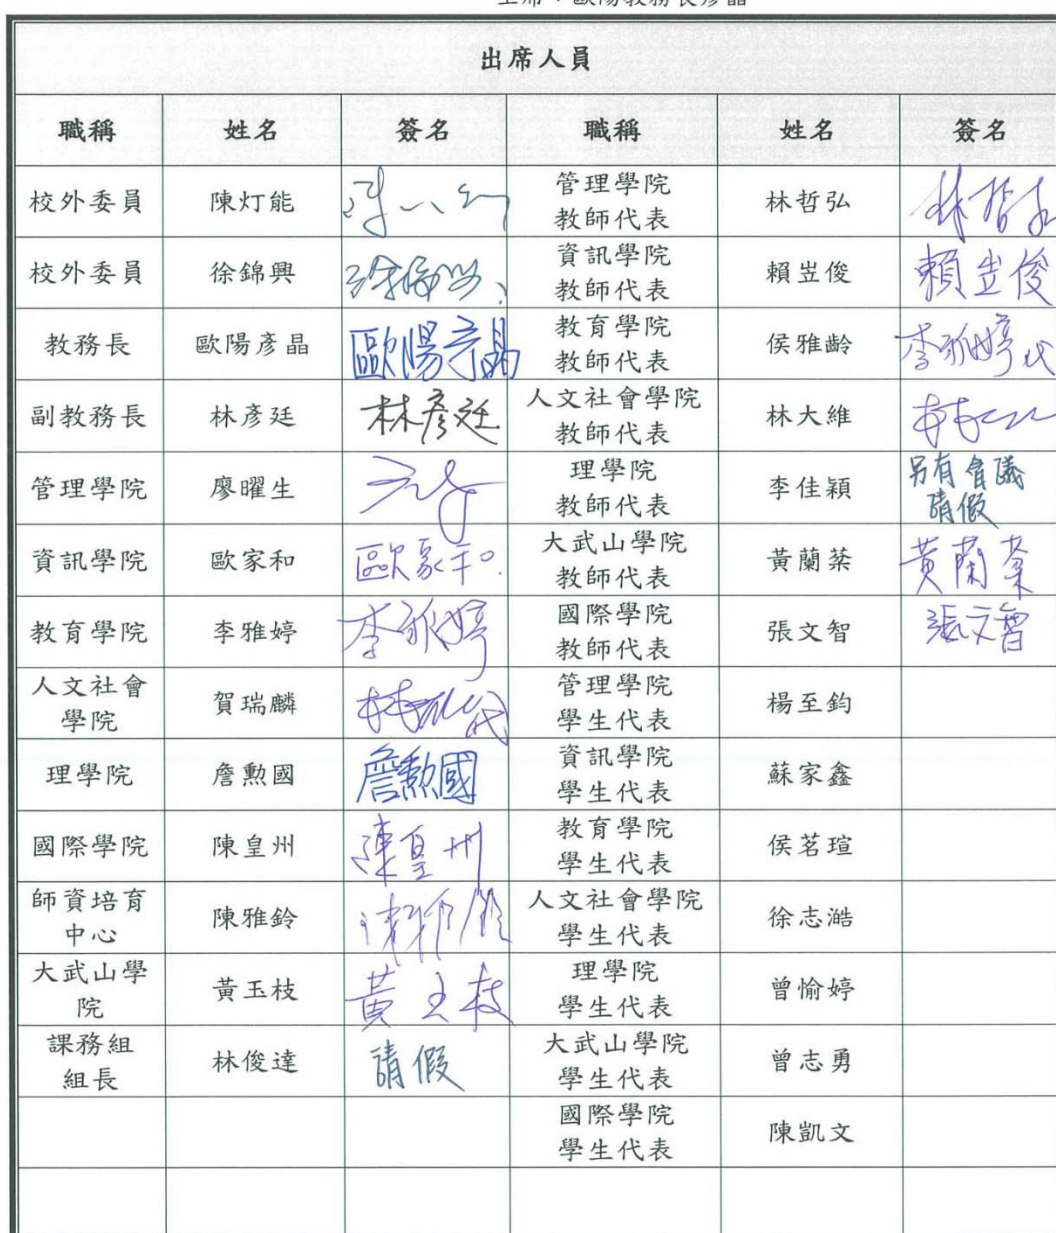 主席：歐陽教務長彥晶
出席人員
職稱 姓名 簽名 職稱 姓名 簽名
校外委員 陳灯能 管理學院 教師代表 林哲弘 林哲弘
校外委員 徐錦興 徐錦興 資訊學院 教師代表 賴岦俊 賴岦俊
教務長 歐陽彥晶 歐陽彥晶 教育學院 教師代表 侯雅齡 李雅婷代
副教務長 林彥廷 林彥廷 人文社會學院 教師代表 林大維
管理學院 廖曜生 理學院 教師代表 李佳穎 另有會議 請假
資訊學院 歐家和 歐家和 大武山學院 教師代表 黃蘭棻 黃蘭棻
教育學院 李雅婷 李雅婷 國際學院 教師代表 張文智 張文智
人文社會 學院 賀瑞麟 管理學院 學生代表 楊至鈞
理學院 詹勲國 詹勲國 資訊學院 學生代表 蘇家鑫
國際學院 陳皇州 陳皇州 教育學院 學生代表 侯茗瑄
師資培育 中心 陳雅鈴 陳雅鈴 人文社會學院 學生代表 徐志澔
大武山學 院 黃玉枝 黃玉枝 理學院 學生代表 曾愉婷
課務組 組長 林俊達 請假 大武山學院 學生代表 曾志勇
國際學院 學生代表 陳凱文